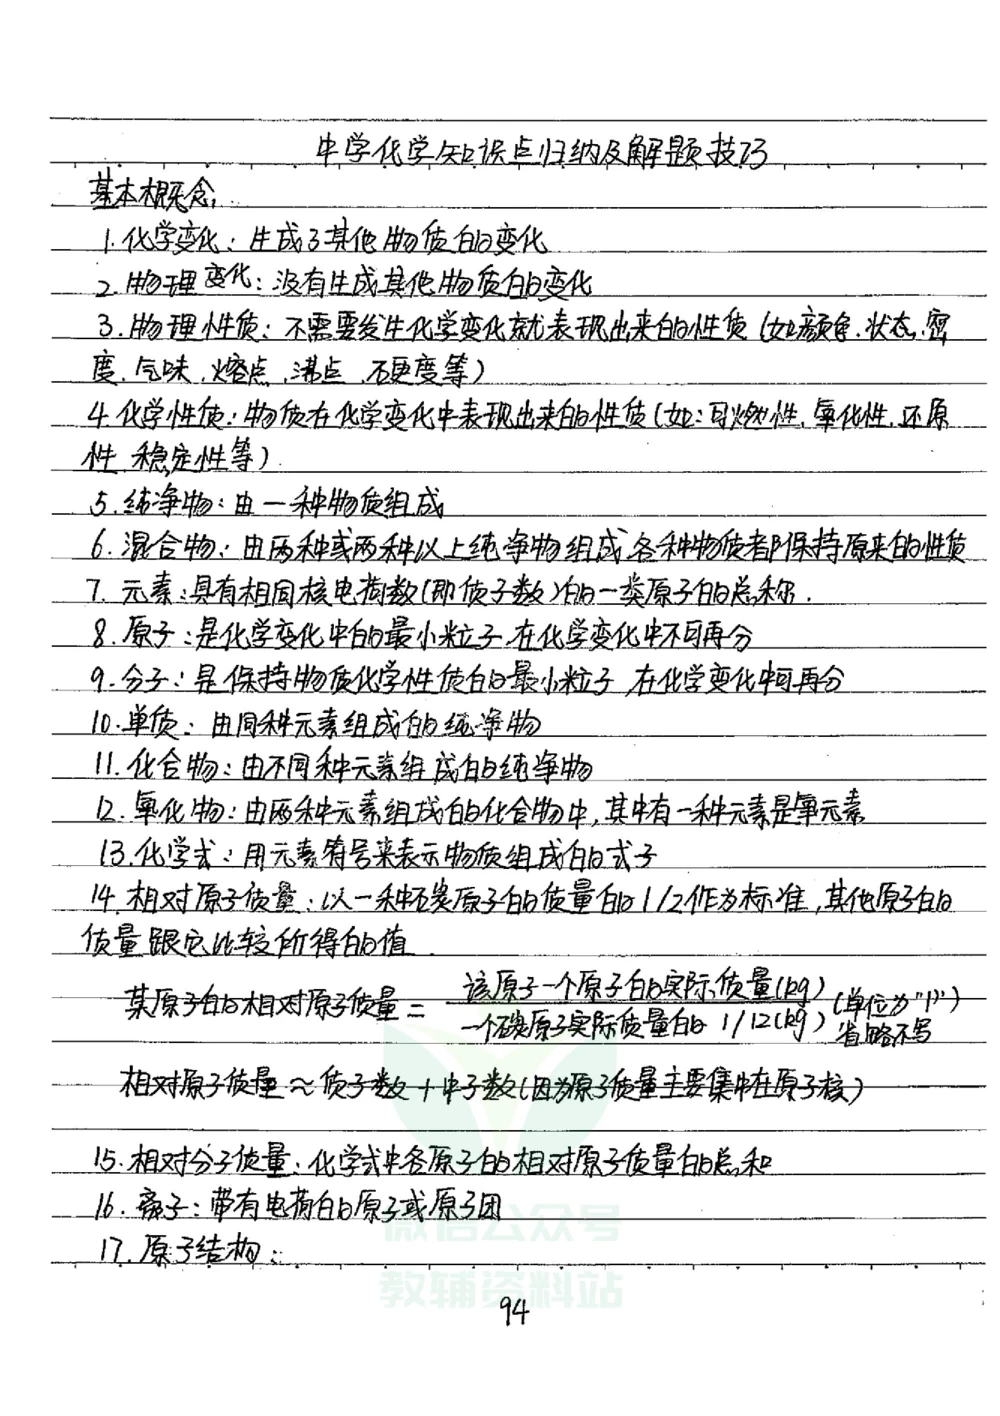 中学化学知识点归纳及解题技巧
基本概念:
1.化学变化:生成了其他物质的变化
2.物理变化:没有生成其他物质的变化
3.物理性质:不需要发生化学变化就表现出来的性质(如:颜色.状态.密
度.气味.熔点.沸点.硬度等)
4.化学性质:物质在化学变化中表现出来的性质(如:可燃性.氧化性.还原
性.稳定性等)
5.纯净物:由一种物质组成
6.混合物:由两种或两种以上纯净物组成各种物质都保持原来的性质
7.元素:具有相同核电荷数(即质子数)的一类原子的总称.
8.原子:是化学变化中的最小粒子.在化学变化中不可再分
9.分子:是保持物质化学性质的最小粒子.在化学变化中可再分
10.单质:由同种元素组成的纯净物
11.化合物:由不同种元素组成的纯净物
12.氧化物:由两种元素组成的化合物中,其中有一种元素是氧元素
13.化学式:用元素符号来表示物质组成的式子
14.相对原子质量:以一种碳原子的质量的1/12作为标准,其他原子的
质量跟它比较所得的值
某原子的相对原子质量=该原子一个原子的实际质量(kg)
一个碳原子实际质量的1/12(kg)
(单位为"1")
省略不写
相对原子质量≈质子数+中子数(因为原子质量主要集中在原子核)
15.相对分子质量:化学式中各原子的相对原子质量的总和
16.离子:带有电荷的原子或原子团
17.原子结构:
微信公众号
教辅资料站
94